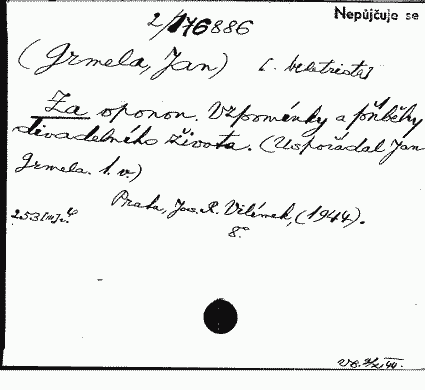 Nepůjčuje se
2/176886
(Grmela, Jan) [. beletrista]
Za oponou. Vzpomínky a příběhy
divadelného života. (Uspořádal Jan
Grmela. 1. v.)
Praha, Jos. R. Vilímek, (1944).
253 [III] s. 8°.